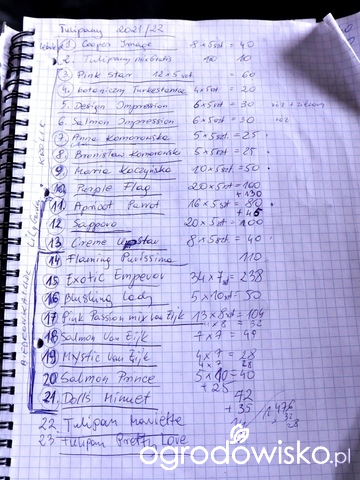 Tulipany 2021/22
1. Cooper Image 8 x 5szt = 40
2. Tulipany 100 10
3. Pink Star 12 x 5szt = 60
4. botaniczny Turkestanica 4 x 5szt = 20
5. Design Impression 6 x 5szt = 30
6. Salmon Impression 6 x 5szt = 30 róż
7. Anna Komorowska 5 x 5szt = 25
8. Bronisław Komorowski 5 x 5szt = 25
9. Maria Kaczyńska 10 x 5szt = 50
10. Purple Flag 20 x 5szt = 100
+130
11 Apricot Parrot 16 x 5szt = 80
+45
12 Sapporo 20 x 5szt = 100
13 Creme Upstar 8 x 5szt = 40
14 Flaming Purissima 110
15 Exotic Emperor 34 x 7szt = 238
16 Blushing Lady 5 x 10szt = 50
17 Pink Passion mix van Eijk 13 x 8szt = 104
x 8 = 32
18 Salmon Van Eijk 7 x 7 = 49
19 Mystic Van Eijk 4 x 7 = 28
20 Salmon Prince 5 x 10 = 40
+ 25
21. Dolls Minuet 72
+ 35
22. Tulipan Mariette
23. tulipan Pretty Love
ogrodowisko.pl